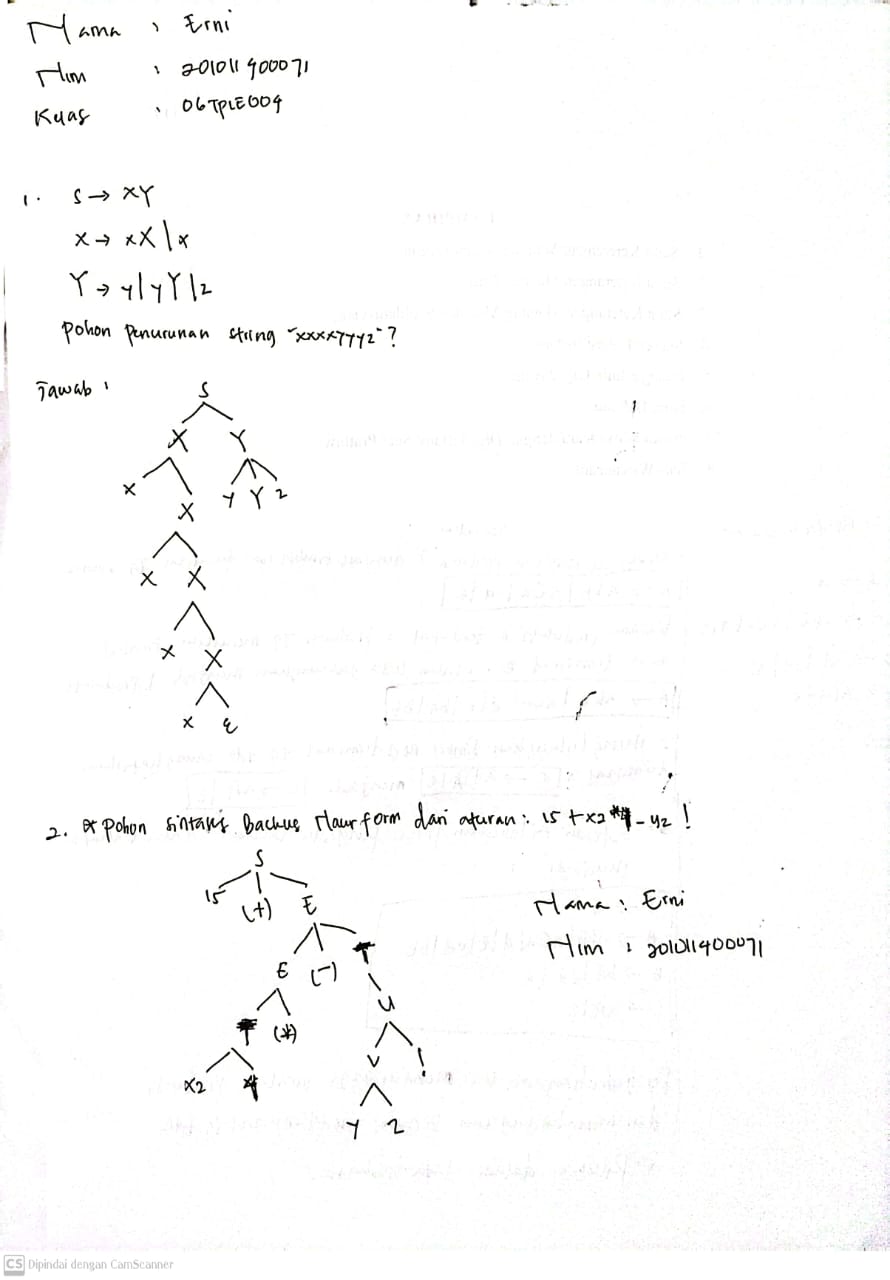 Nama : Erni
Nim : 201011400071
Kelas : 06TPLE004
1. S → XY
X → xX | x
Y → y | yY | z
Pohon Penurunan string "xxxxyyyz"?
Jawab :
S
X Y
x X y Y z
x X
x X
x ε
2. Pohon sintaks Backus Naur form dari aturan : 15 + x2 * - yz !
S
15 (+) E
E (-) T
T (*) U
x2 4 V !
Y Z
Nama : Erni
Nim : 201011400071
CS Dipindai dengan CamScanner